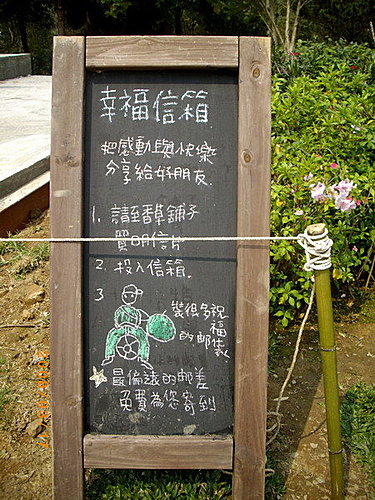 幸福信箱
把感動與快樂
分享給好朋友.
1. 請至香草鋪子
買明信片
2. 投入信箱.
3
裝很多祝
福
的邮袋
最偏遠的邮差
免費為您寄到